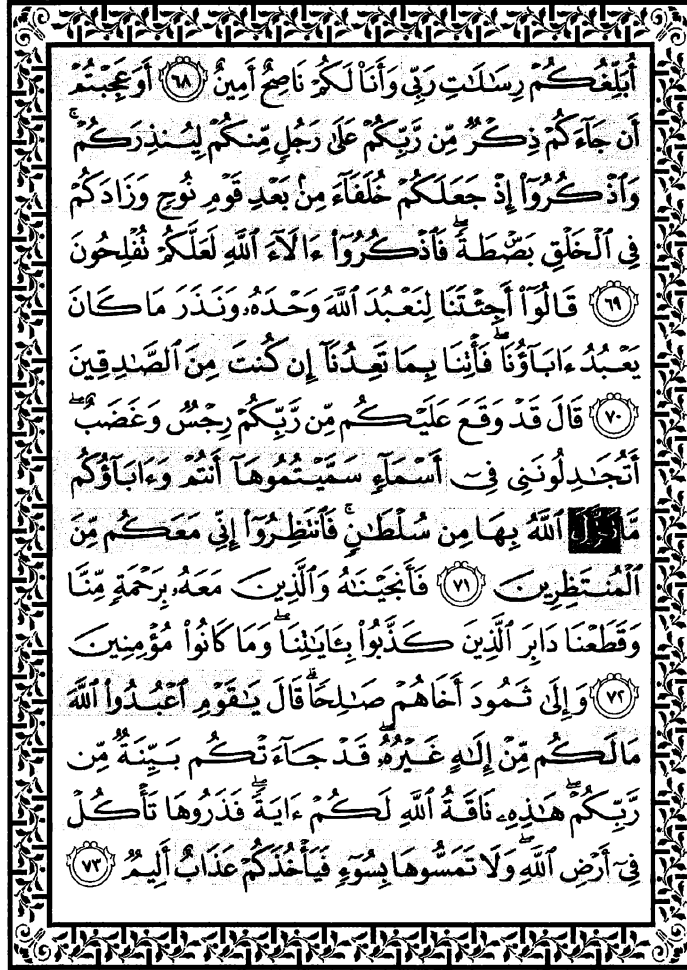 أُبَلِّغُكُمْ رِسَٰلَٰتِ رَبِّى وَأَنَا۠ لَكُمْ نَاصِحٌ أَمِينٌ ﴿٦٨﴾ أَوَعَجِبْتُمْ
أَن جَآءَكُمْ ذِكْرٌ مِّن رَّبِّكُمْ عَلَىٰ رَجُلٍ مِّنكُمْ لِيُنذِرَكُمْ ۚ
وَٱذْكُرُوٓا۟ إِذْ جَعَلَكُمْ خُلَفَآءَ مِنۢ بَعْدِ قَوْمِ نُوحٍ وَزَادَكُمْ
فِى ٱلْخَلْقِ بَصْۜطَةً ۖ فَٱذْكُرُوٓا۟ ءَالَآءَ ٱللَّهِ لَعَلَّكُمْ تُفْلِحُونَ
﴿٦٩﴾ قَالُوٓا۟ أَجِئْتَنَا لِنَعْبُدَ ٱللَّهَ وَحْدَهُۥ وَنَذَرَ مَا كَانَ
يَعْبُدُ ءَابَآؤُنَا ۖ فَأْتِنَا بِمَا تَعِدُنَآ إِن كُنتَ مِنَ ٱلصَّٰدِقِينَ
﴿٧٠﴾ قَالَ قَدْ وَقَعَ عَلَيْكُم مِّن رَّبِّكُمْ رِجْسٌ وَغَضَبٌ ۖ
أَتُجَٰدِلُونَنِى فِىٓ أَسْمَآءٍ سَمَّيْتُمُوهَآ أَنتُمْ وَءَابَآؤُكُم
مَّا نَزَّلَ ٱللَّهُ بِهَا مِن سُلْطَٰنٍ ۚ فَٱنتَظِرُوٓا۟ إِنِّى مَعَكُم مِّنَ
ٱلْمُنتَظِرِينَ ﴿٧١﴾ فَأَنجَيْنَٰهُ وَٱلَّذِينَ مَعَهُۥ بِرَحْمَةٍ مِّنَّا
وَقَطَعْنَا دَابِرَ ٱلَّذِينَ كَذَّبُوا۟ بِـَٔايَٰتِنَا ۖ وَمَا كَانُوا۟ مُؤْمِنِينَ
﴿٧٢﴾ وَإِلَىٰ ثَمُودَ أَخَاهُمْ صَٰلِحًا ۗ قَالَ يَٰقَوْمِ ٱعْبُدُوا۟ ٱللَّهَ
مَا لَكُم مِّنْ إِلَٰهٍ غَيْرُهُۥ ۖ قَدْ جَآءَتْكُم بَيِّنَةٌ مِّن
رَّبِّكُمْ ۖ هَٰذِهِۦ نَاقَةُ ٱللَّهِ لَكُمْ ءَايَةً ۖ فَذَرُوهَا تَأْكُلْ
فِىٓ أَرْضِ ٱللَّهِ ۖ وَلَا تَمَسُّوهَا بِسُوٓءٍ فَيَأْخُذَكُمْ عَذَابٌ أَلِيمٌ ﴿٧٣﴾